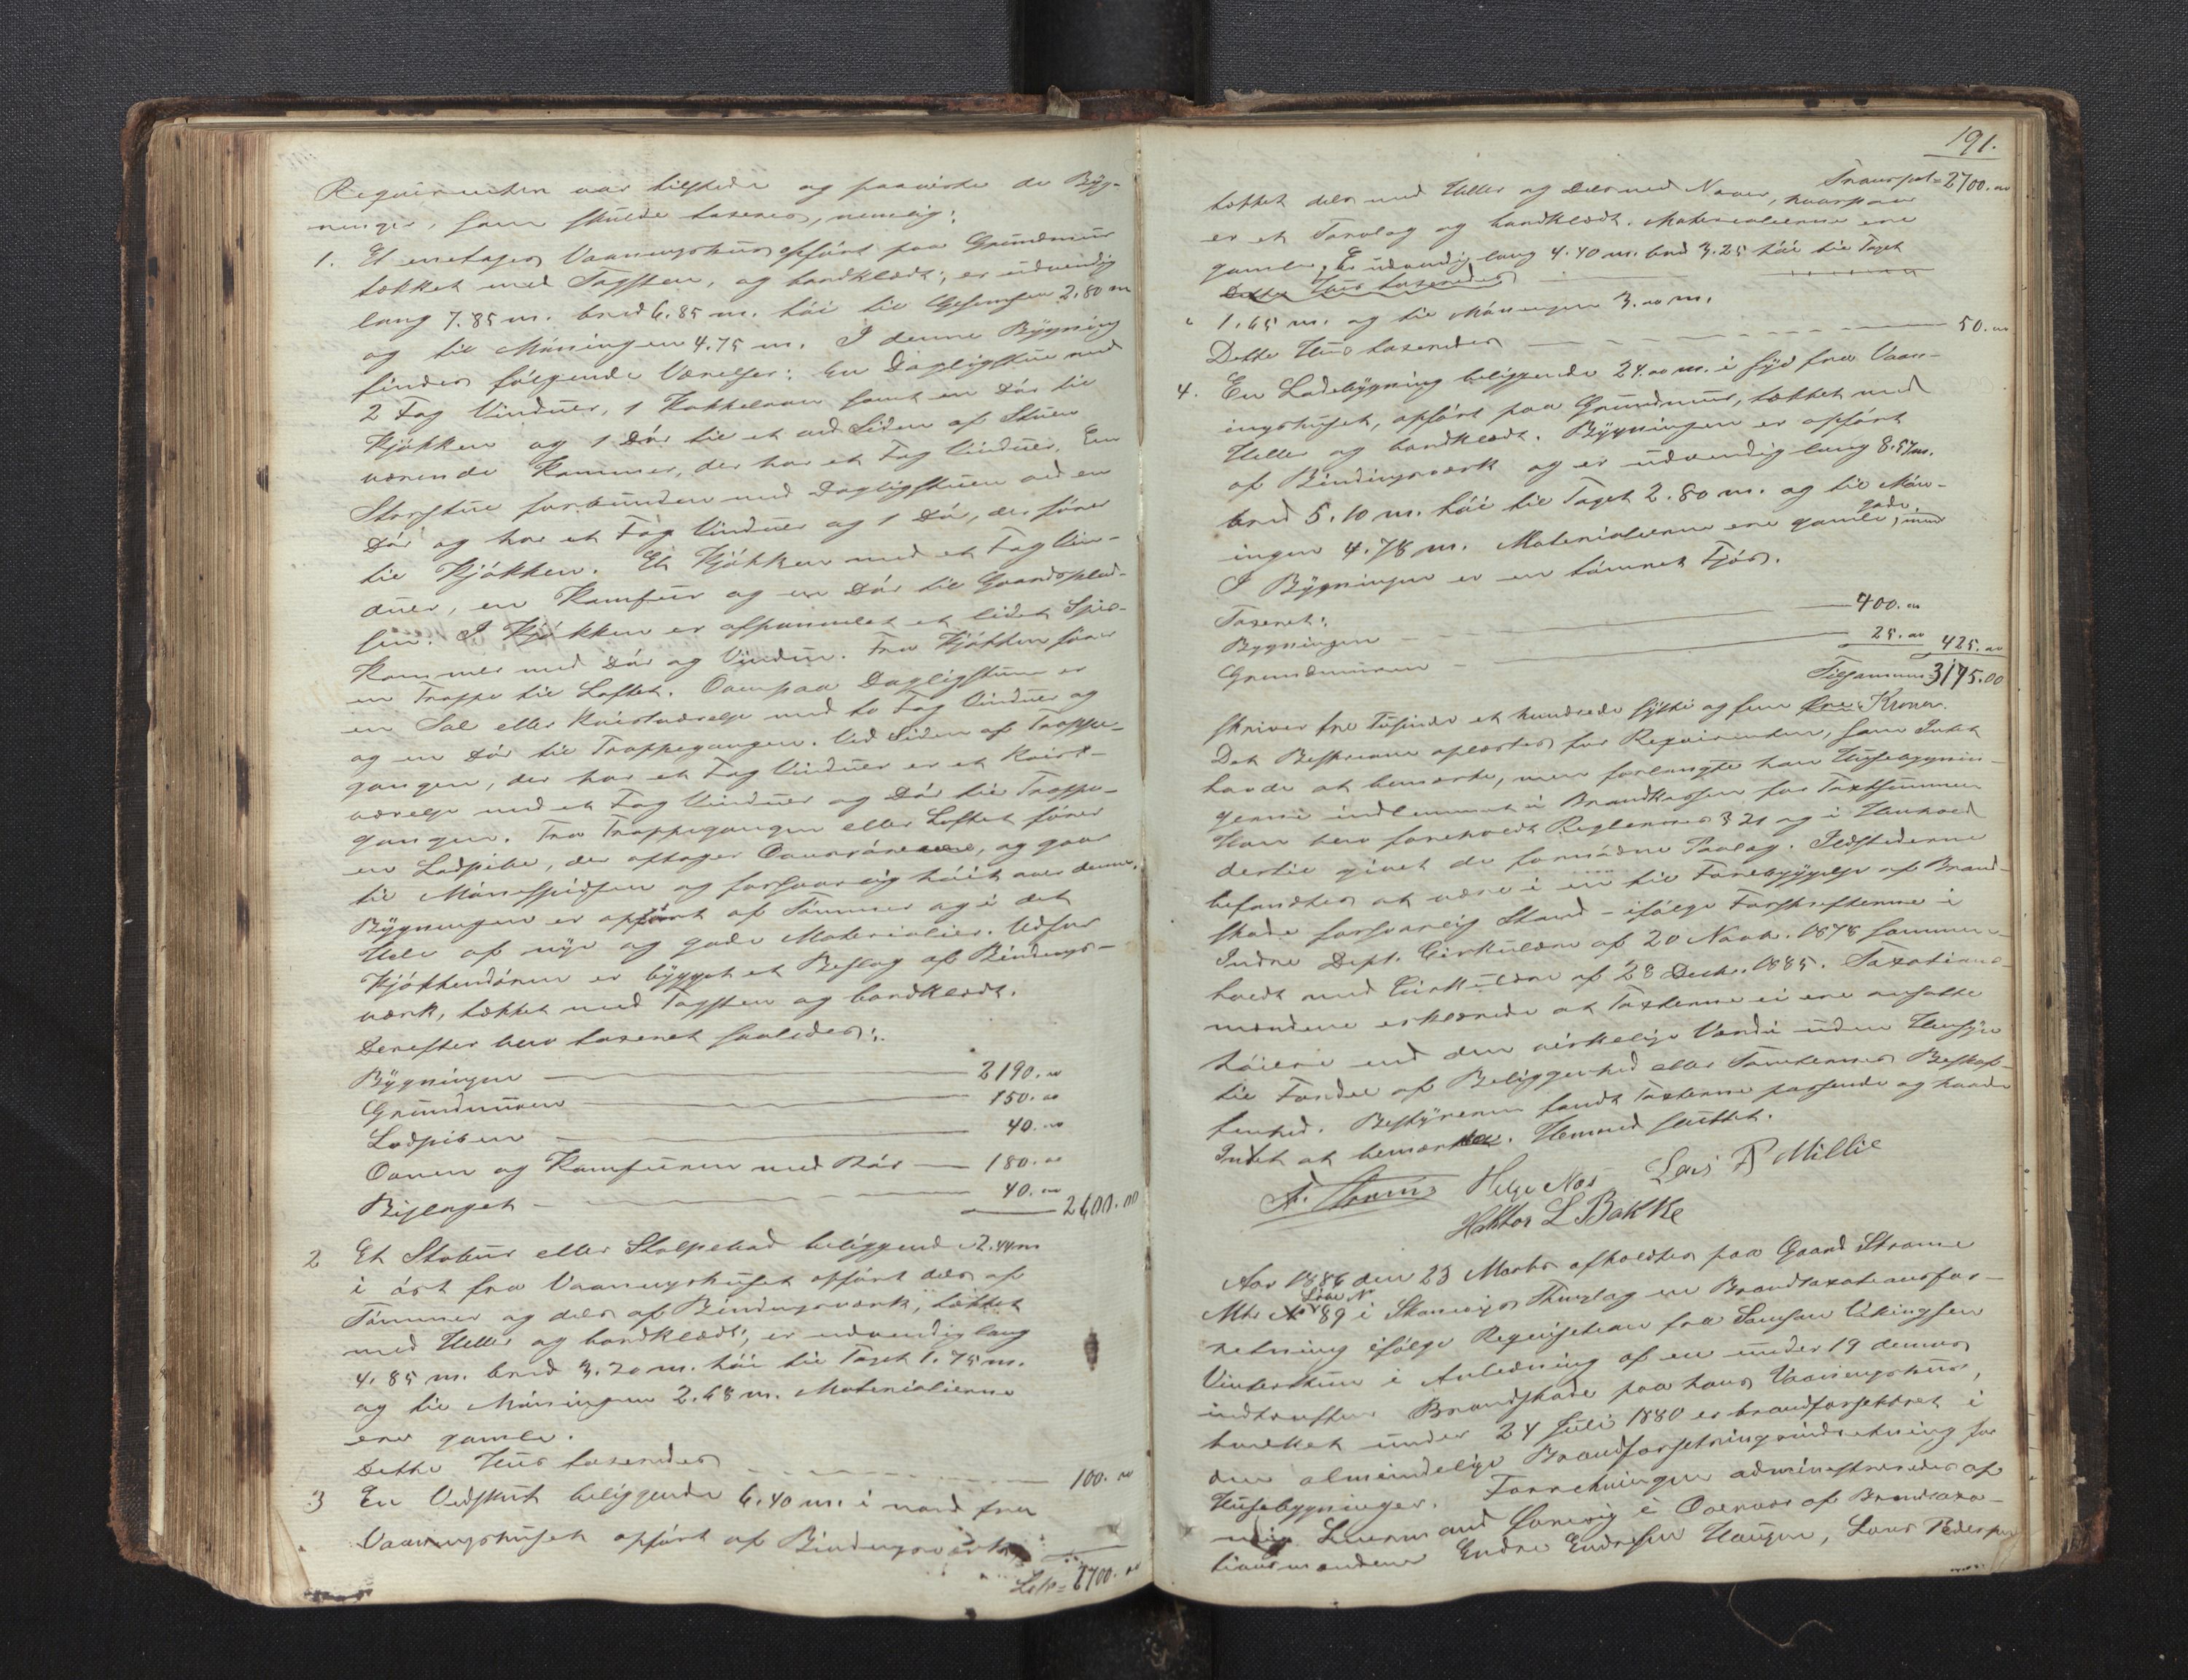 Requirenten var tilstede og paaviste de Byg-
ninger, som skulde taxeres, nemlig:
1. Et eenetages Vaaningshus opført paa Grundmuur
tækket med Tagsten, og bordklædt; er udvendig
lang 7.85 m. bred 6.85 m. høi til Gesimsen 2.80 m
og til Møningen 4.75 m. I denne Bygning
findes følgende Værelser: En Dagligstue med
2 Fag Vinduer, 1 Kakkelovn samt en Dør til
Kjøkken og 1 Dør til et ved Siden af Stuen
værende Kammer, der har et Fag Vinduer. En
Storstue forbunden med Dagligstuen ved en
Dør og har et Fag Vinduer og 1 Dør, der fører
til Kjøkken. Et Kjøkken med et Fag Vin-
duer, en Komfuur og en Dør til Gaardsplad-
sen. I Kjøkken er afpanelet et lidet Spise-
kammer med Dør og Vindue. Fra Kjøkken fører
en Trappe til Loftet. Ovenpaa Dagligstuen er
en Sal eller Kvistværelse med to Fag Vinduer og
og en Dør til Trappegangen. Ved Siden af Trappe-
gangen, der har et Fag Vinduer er et Kvist-
værelse med et Fag Vinduer og Dør til Trappe-
gangen. Fra Trappegangen eller Loftet fører
en Ladpibe, der optager Ovnsrørene, og gaar
til Mønespidsen og forsvarlig høit over denne.
Bygningen er opført af Tømmer og i det
Hele af nye og gode Materialier. Udfor
Kjøkkendøren er bygget et Beslag af Bindings-
værk, tækket med Tagsten og bordklædt.
Derefter blev taxeret saaledes:
Bygningen 2190.00
Grundmuren 150.00
Ladpiben 40.00
Ovnen og Komfuren med Rør 180.00
Bislaget 40.00 2600.00
2 Et Stabur eller Stolpebod beliggende 2.44 m
i øst fra Vaaningshuset opført dels af
Tømmer og dels af Bindingsværk, tækket
med Heller og bordklædt; er udvendig lang
4.85 m. bred 3.20 m. høi til Taget 1.75 m.
og til Møningen 2.68 m. Materialierne
ere gamle.
Dette Huus taxeredes 100.00
3 En Vedskut beliggende 6.40 m. i nord fra
Vaaningshuset opført af Bindingsværk
Lats = 2700.00
191.
Transpt = 2700.00
tækket dels med Heller og dels med Næver, hvorpaa
er et Torvlag og bordklædt. Materialierne ere
gamle, Er udvendig lang 4.40 m. bred 3.25 høi til Taget
Dette Huus taxeredes
" 1.65 m. og til Møningen 3.00 m.
Dette Huus taxeredes 50.00
4. En Ladebygning beliggende 24.00 m. i syd fra Vaan-
ingshuset, opført paa Grundmuur, tækket med
Heller og bordklædt. Bygningen er opført
af Bindingsværk og er udvendig lang 8.57 m.
bred 5.10 m. høi til Taget 2.80 m. og til Møn-
ingen 4.78 m. Materialierne ere gamle, men gode.
I Bygningen er en tømret Fjøs.
Taxeret:
Bygningen 400.00
Grundmuren 25.00 425.00
Tilsammen 3175.00
skriver tre Tusinde et hundrede sytti og fem Øre Kroner.
Det Beskrevne oplæstes for Requirenten, som Intet
havde at bemærke, men forlangte han Husebygnin-
gerne indlemmet i Brandkassen for Taxtsummen
Han blev foreholdt Reglernes § 21 og i Henhold
dertil givet de fornødne Paalæg. Ildstederne
befandtes at være i en til Forebyggelse af Brand-
skade forsvarlig Stand - ifølge Forskrifterne i
Indre Dept. Cirkulære af 20 Novb. 1878 sammen-
holdt med Cirkulære af 28 Decbr. 1885. Taxations-
mændene erklærede at Taxterne ei ere ansatte
høiere end den virkelige Værdi uden Hensyn
til Fordel af Beliggenhed eller Tomternes Beskaf-
fenhed. Bestyreren fandt Taxterne passende og havde
Intet at bemærke. Hermed sluttet.
Helge Næs Lars P Millie
Haktor L Bakke
Aar 1886 den 23 Marts afholdtes paa Gaard Strøme
Mtr Løbe No 89 i Skanevigs Thinglag en Brandtaxationsfor-
retning ifølge Requisition fra Samson Vikingsen
Vinterthun i Anledning af en under 19 dennes
indtruffen Brandskade paa hans Vaaningshus,
hvilket under 24 Juli 1880 er brandforsikret i
den almindelige Brandforsikringsindretning for
Husebygninger. Forretningen administreredes af
Lensmand i Overvær af Brandtaxa-
tionsmændene Endre Endresen Haugen, Lars Pedersen